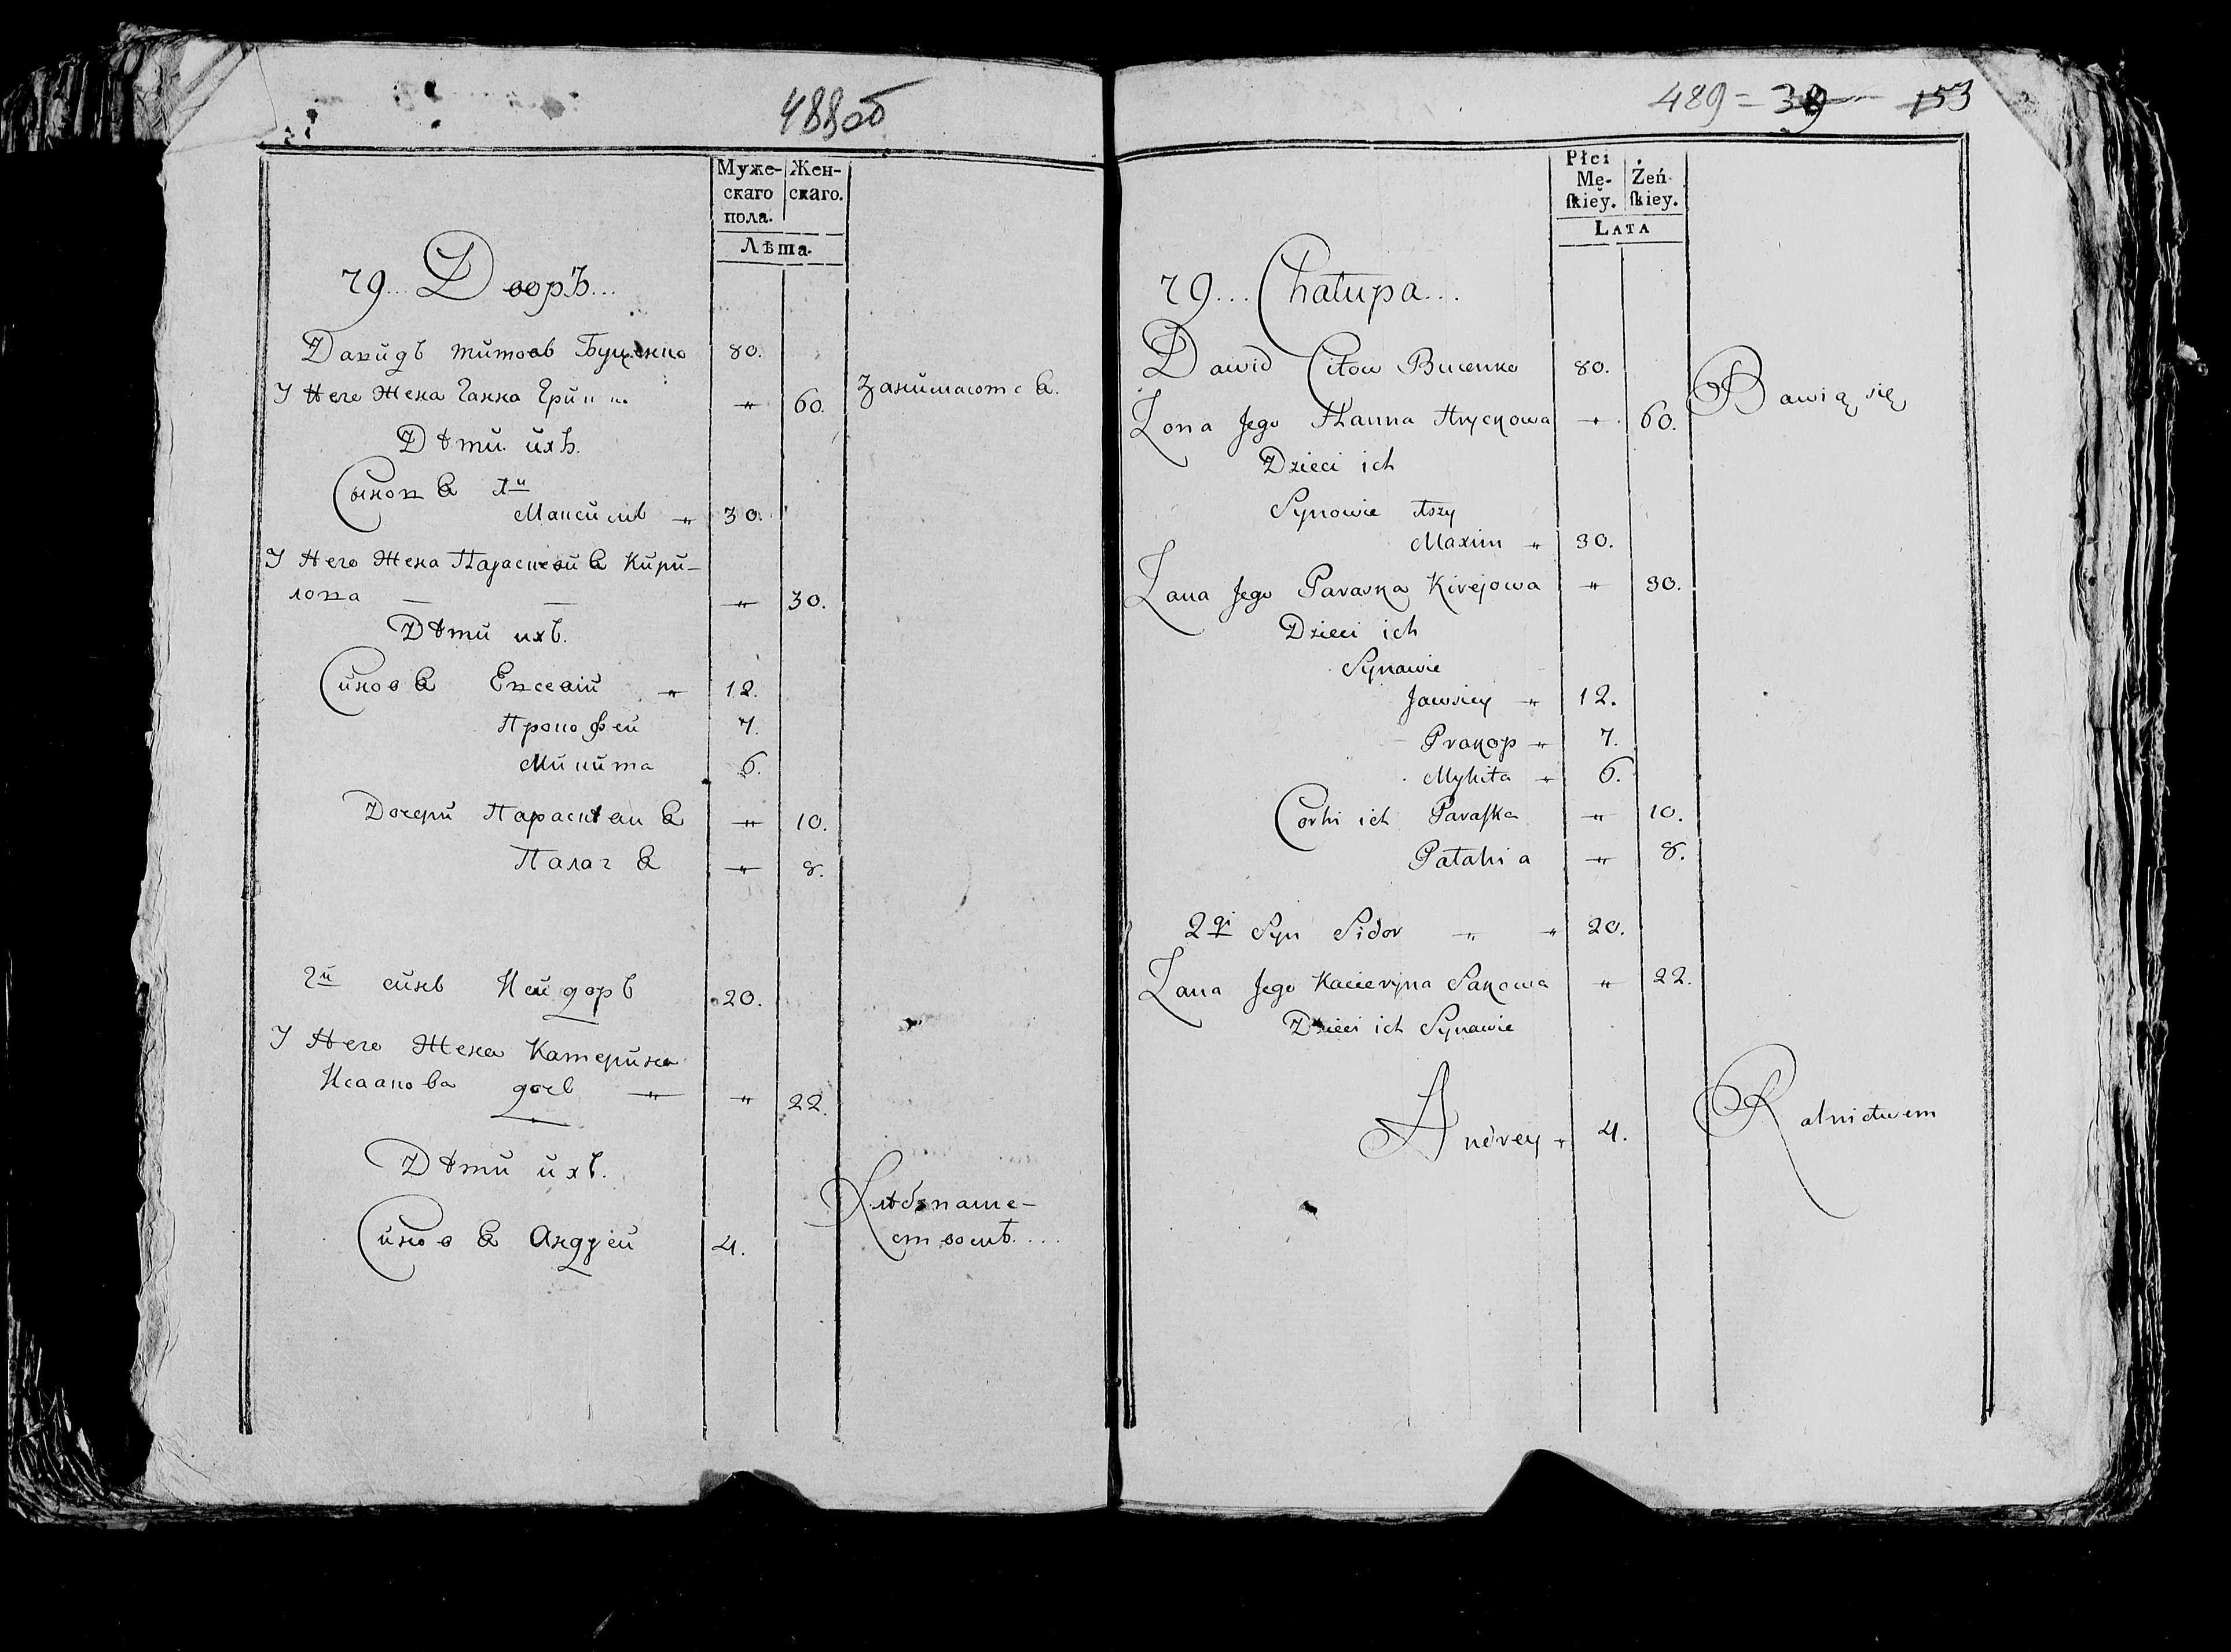 488об
Муже-
скаго
пола.
Жен-
скаго.
Лѣта.
79... Дворъ...
Давидъ титовъ Буценко 80.
У Него Жена Ганна " 60. Занимаютса
Дѣти ихъ.
Синовя 1й
Максимъ " 30.
У Него Жена Параскевия Кири-
лова " 30.
Дѣти ихъ.
Синовя Евсевій " 12.
Прокофей 7.
Микита 6.
Дочери Параскевия " 10.
Палагя " 8.
2й синъ Исидоръ 20.
У Него Жена Катерина
Исаакова дочь " " 22.
Дѣти ихъ.
Хлѣбопаше-
Синовя Андрей 4. ствомъ....
489 = 39 153
Płci
Mę-
ſkiey.
Żeń-
ſkiey.
LATA
79... Chałupa...
Dawid Citow Bucenko 80. Bawią się
Zona Jego Hanna Hryckowa " 60.
Dzieci ich
Synowie 1szy
Maxim " 30.
Zona Jego Paraska Kirejowa " 30.
Dzieci ich
Synowie
Jawsiey " 12.
Prakop " 7.
Mykita " 6.
Corki ich Paraſka " 10.
Pałahia " 8.
2gi Syn Sidor " " 20.
Zona Jego Kacieryna Sakowa " 22.
Dzieci ich Synowie
Andrey " 4. Rolnictwem